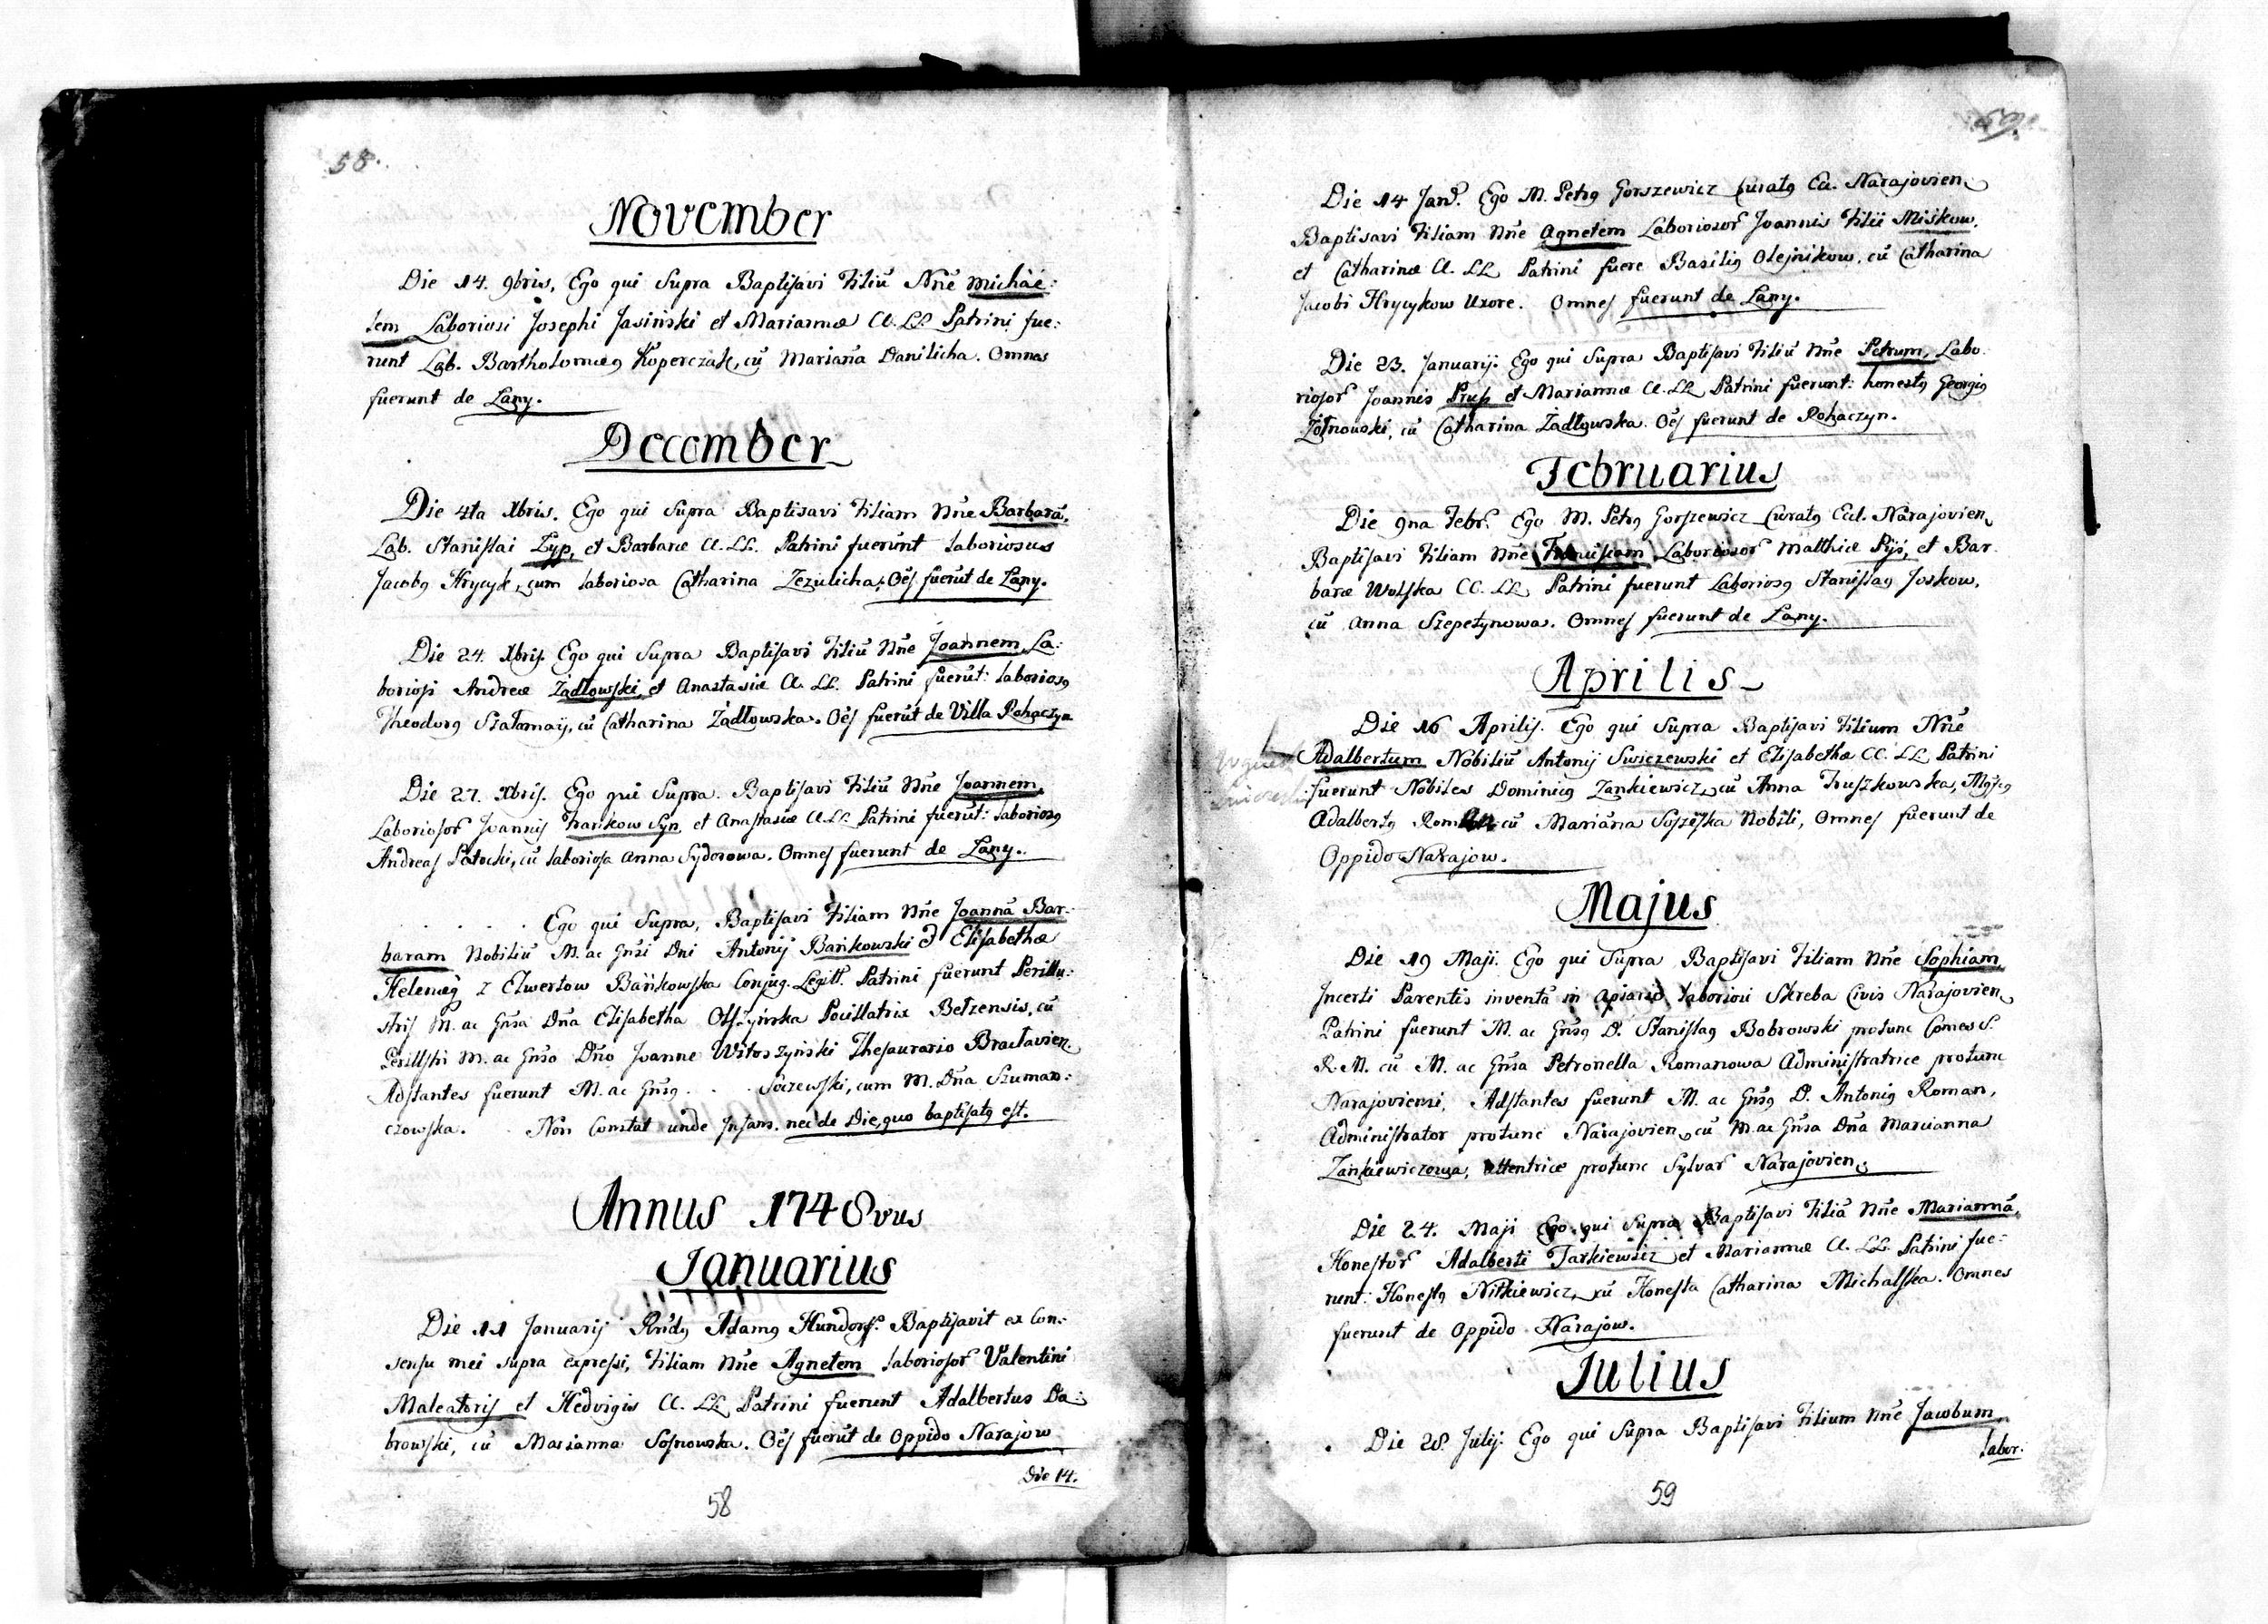 58.
November
Die 14. 9bris, Ego qui Supra Baptisavi Filiũ Nñe Michaë:
lem Laboriosi Josephi Jasiński et Mariannæ CC. LL. Patrini fue:
runt Lab. Bartholomæg Koperczak, cũ Mariaña Danilicha. Omnes
fuerunt de Łany.
December
Die 4ta Xbris. Ego qui Supra Baptisavi Filiam Nñe Barbarã,
Lab. Stanislai Zyp, et Barbaræ CC. LL. Patrini fuerunt Laboriosus
Jacobg Hrycyk, cum laboriosa Catharina Zezulicha. Oẽs fuerũt de Łany.
Die 24. Xbris. Ego qui Supra Baptisavi Filiũ Nñe Joannem La:
boriosi Andreæ Żądłowski, et Anastasiæ CC. LL. Patrini fuerũt: laboriosg
Theodorg Szałamay, cũ Catharina Żądłowska. Oẽs fuerũt de Villa Rohaczyn
Die 27. Xbris. Ego qui Supra. Baptisavi Filiũ Nñe Joannem,
Laboriosor Joannis Frankow Syn, et Anastasiæ CC. LL. Patrini fuerũt: laboriosg
Andreas Potocki, cũ laboriosa Anna Sydorowa. Omnes fuerunt de Łany.
. . . . . Ego qui Supra, Baptisavi Filiam Nñe Joannã Bar:
baram Nobiliũ M. ac Gnsi Dni Antonij Bańkowski & Elisabethæ
Helenæg z Elwertow Bańkowska Conjug. Legitt. Patrini fuerunt Perillu:
stris M. ac Gnsa Dña Elisabetha Olszyńska Pocillatrix Bełzensis, cũ
Perillstri M. ac Gnso Dño Joanne Witoszyński Thesaurario Bracłavien.
Adstantes fuerunt M. ac Gnsg . . . Soczewski, cum M. Dña Szuman:
czowska. Non Constat unde Infans. nec de Die, quo baptisatg est.
Annus 1748vus
Januarius
Die 11 Januarij Rndg Adamg Hundorf. Baptisavit ex Con:
sensu mei supra expressi, Filiam Nñe Agnetem laboriosor Valentini
Maleatoris et Hedvigis CC. LL. Patrini fuerunt Adalbertus Da:
browski, cũ Marianna Sosnowska. Oẽs fuerũt de Oppido Narajow
Die 14.
58
59.
Die 14 Janr. Ego M. Petrg Gorszewicz Curatg Ecc. Narajovien.
Baptisavi Filiam Nñe Agnetem Laboriosor Joannis Filii Miśkow.
et Catharinæ CC. LL. Patrini fuere Basilig Olejnikow, cũ Catharina
Jacobi Hrycykow Uxore. Omnes fuerunt de Łany.
Die 23. Januarij. Ego qui Supra Baptisavi Filiũ Nñe Petrum, Labo:
riosor Joannis Prus et Mariannæ CC. LL. Patrini fuerunt: honestg Georgig
Żołnowski, cũ Catharina Żądłowska. Oẽs fuerunt de Rohaczyn.
Februarius
Die 9na Febr. Ego M. Petrg Gorszewicz Curatg Eccl. Narajovien.
Baptisavi Filiam Nñe Laboriosor Matthiæ Pyś, et Bar:
baræ Wolska CC. LL. Patrini fuerunt Laboriosg Stanislag Joskow,
cũ Anna Szepetynowa. Omnes fuerunt de Łany.
Aprilis
Die 16 Aprilis. Ego qui Supra Baptisavi Filium Nñe
Adalbertum Nobiliũ Antonij Swiczewski et Elisabethæ CC. LL. Patrini
fuerunt Nobiles Dominicg Zankiewicz, cũ Anna Truszkowska,
Adalbertg cũ Mariãna Nobili, Omnes fuerunt de
Oppido Narajow.
Majus
Die 19 Maji. Ego qui Supra Baptisavi Filiam Nñe Sophiam,
Incerti Parentis inventã in Apiario laboriosi Skreba Civis Narajovien.
Patrini fuerunt M. ac Gnsg D. Stanislag Bobrowski protunc Comes S.
R. M. cũ M. ac Gnsa Petronella Romanowa Administratrice protunc
Narajoviensi. Adstantes fuerunt M. ac Gnsg D. Antonig Roman,
Administrator protunc Narajovien. cũ M. ac Gnsa Dña Marianna
Zankiewiczowa, protunc Sylvar Narajovien.
Die 24. Maji Ego qui Supra Baptisavi Filiã Nñe Mariannã,
Honestor Adalberti Tarkiewicz et Mariannæ CC. LL. Patrini fue:
runt: Honestg Nitkiewicz, cũ Honesta Catharina Michalska. Omnes
fuerunt de Oppido Narajow.
Julius
Die 28. Julij. Ego qui Supra Baptisavi Filium Nñe Jacobum
labor.
59